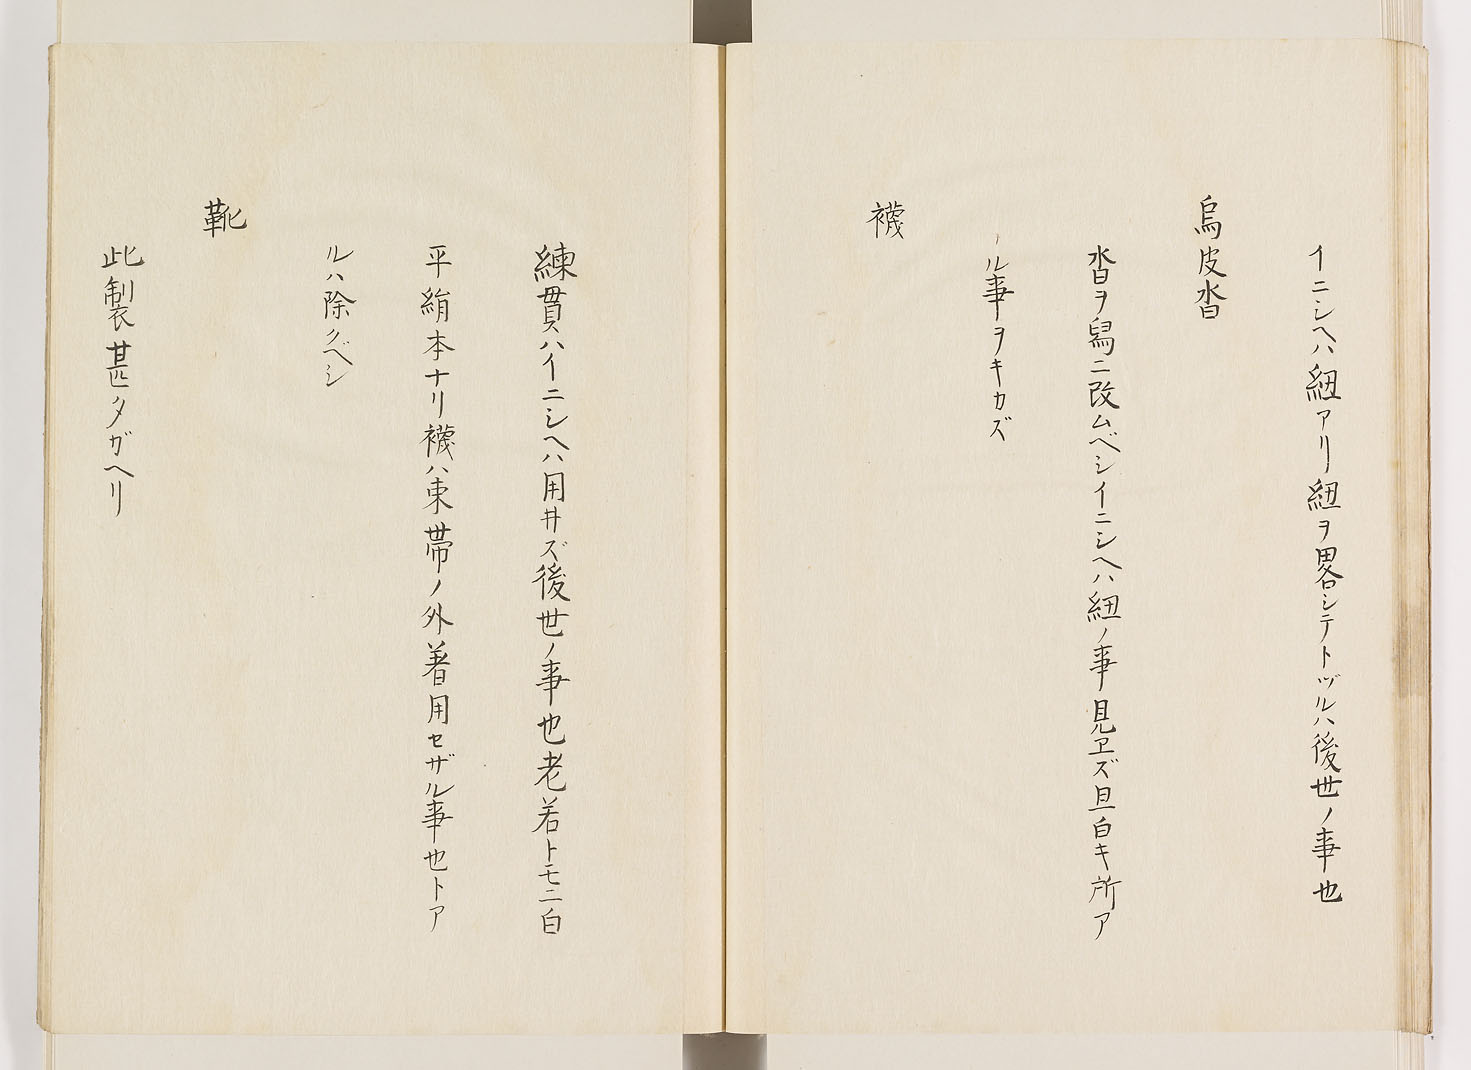 イニシヘハ紐アリ紐ヲ畧シテトヅルハ後世ノ事也
烏皮沓
沓ヲ舄ニ改ムベシイニシヘハ紐ノ事見ヱズ且白キ所ア
ル事ヲキカズ
襪
練貫ハイニシヘハ用井ズ後世ノ事也老若トモニ白
平絹本ナリ襪ハ束帯ノ外着用セザル事也トア
ルハ除クベシ
靴
此製甚タガヘリ